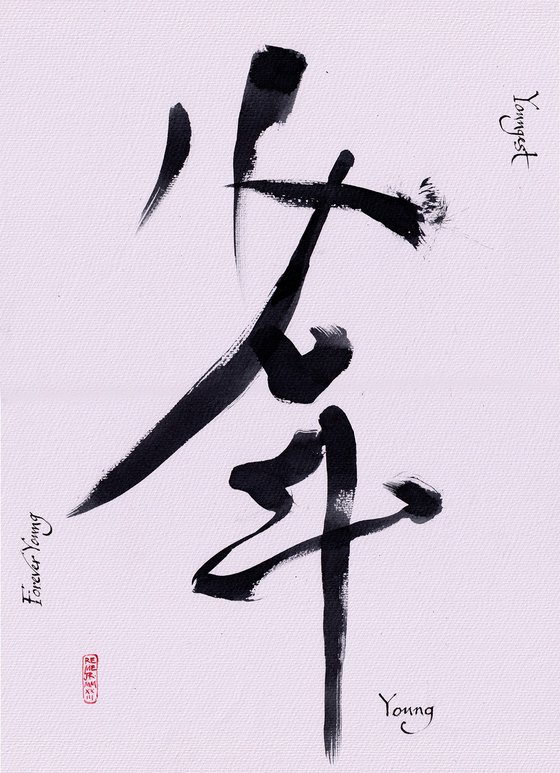 若年
Youngest
Forever Young
Young